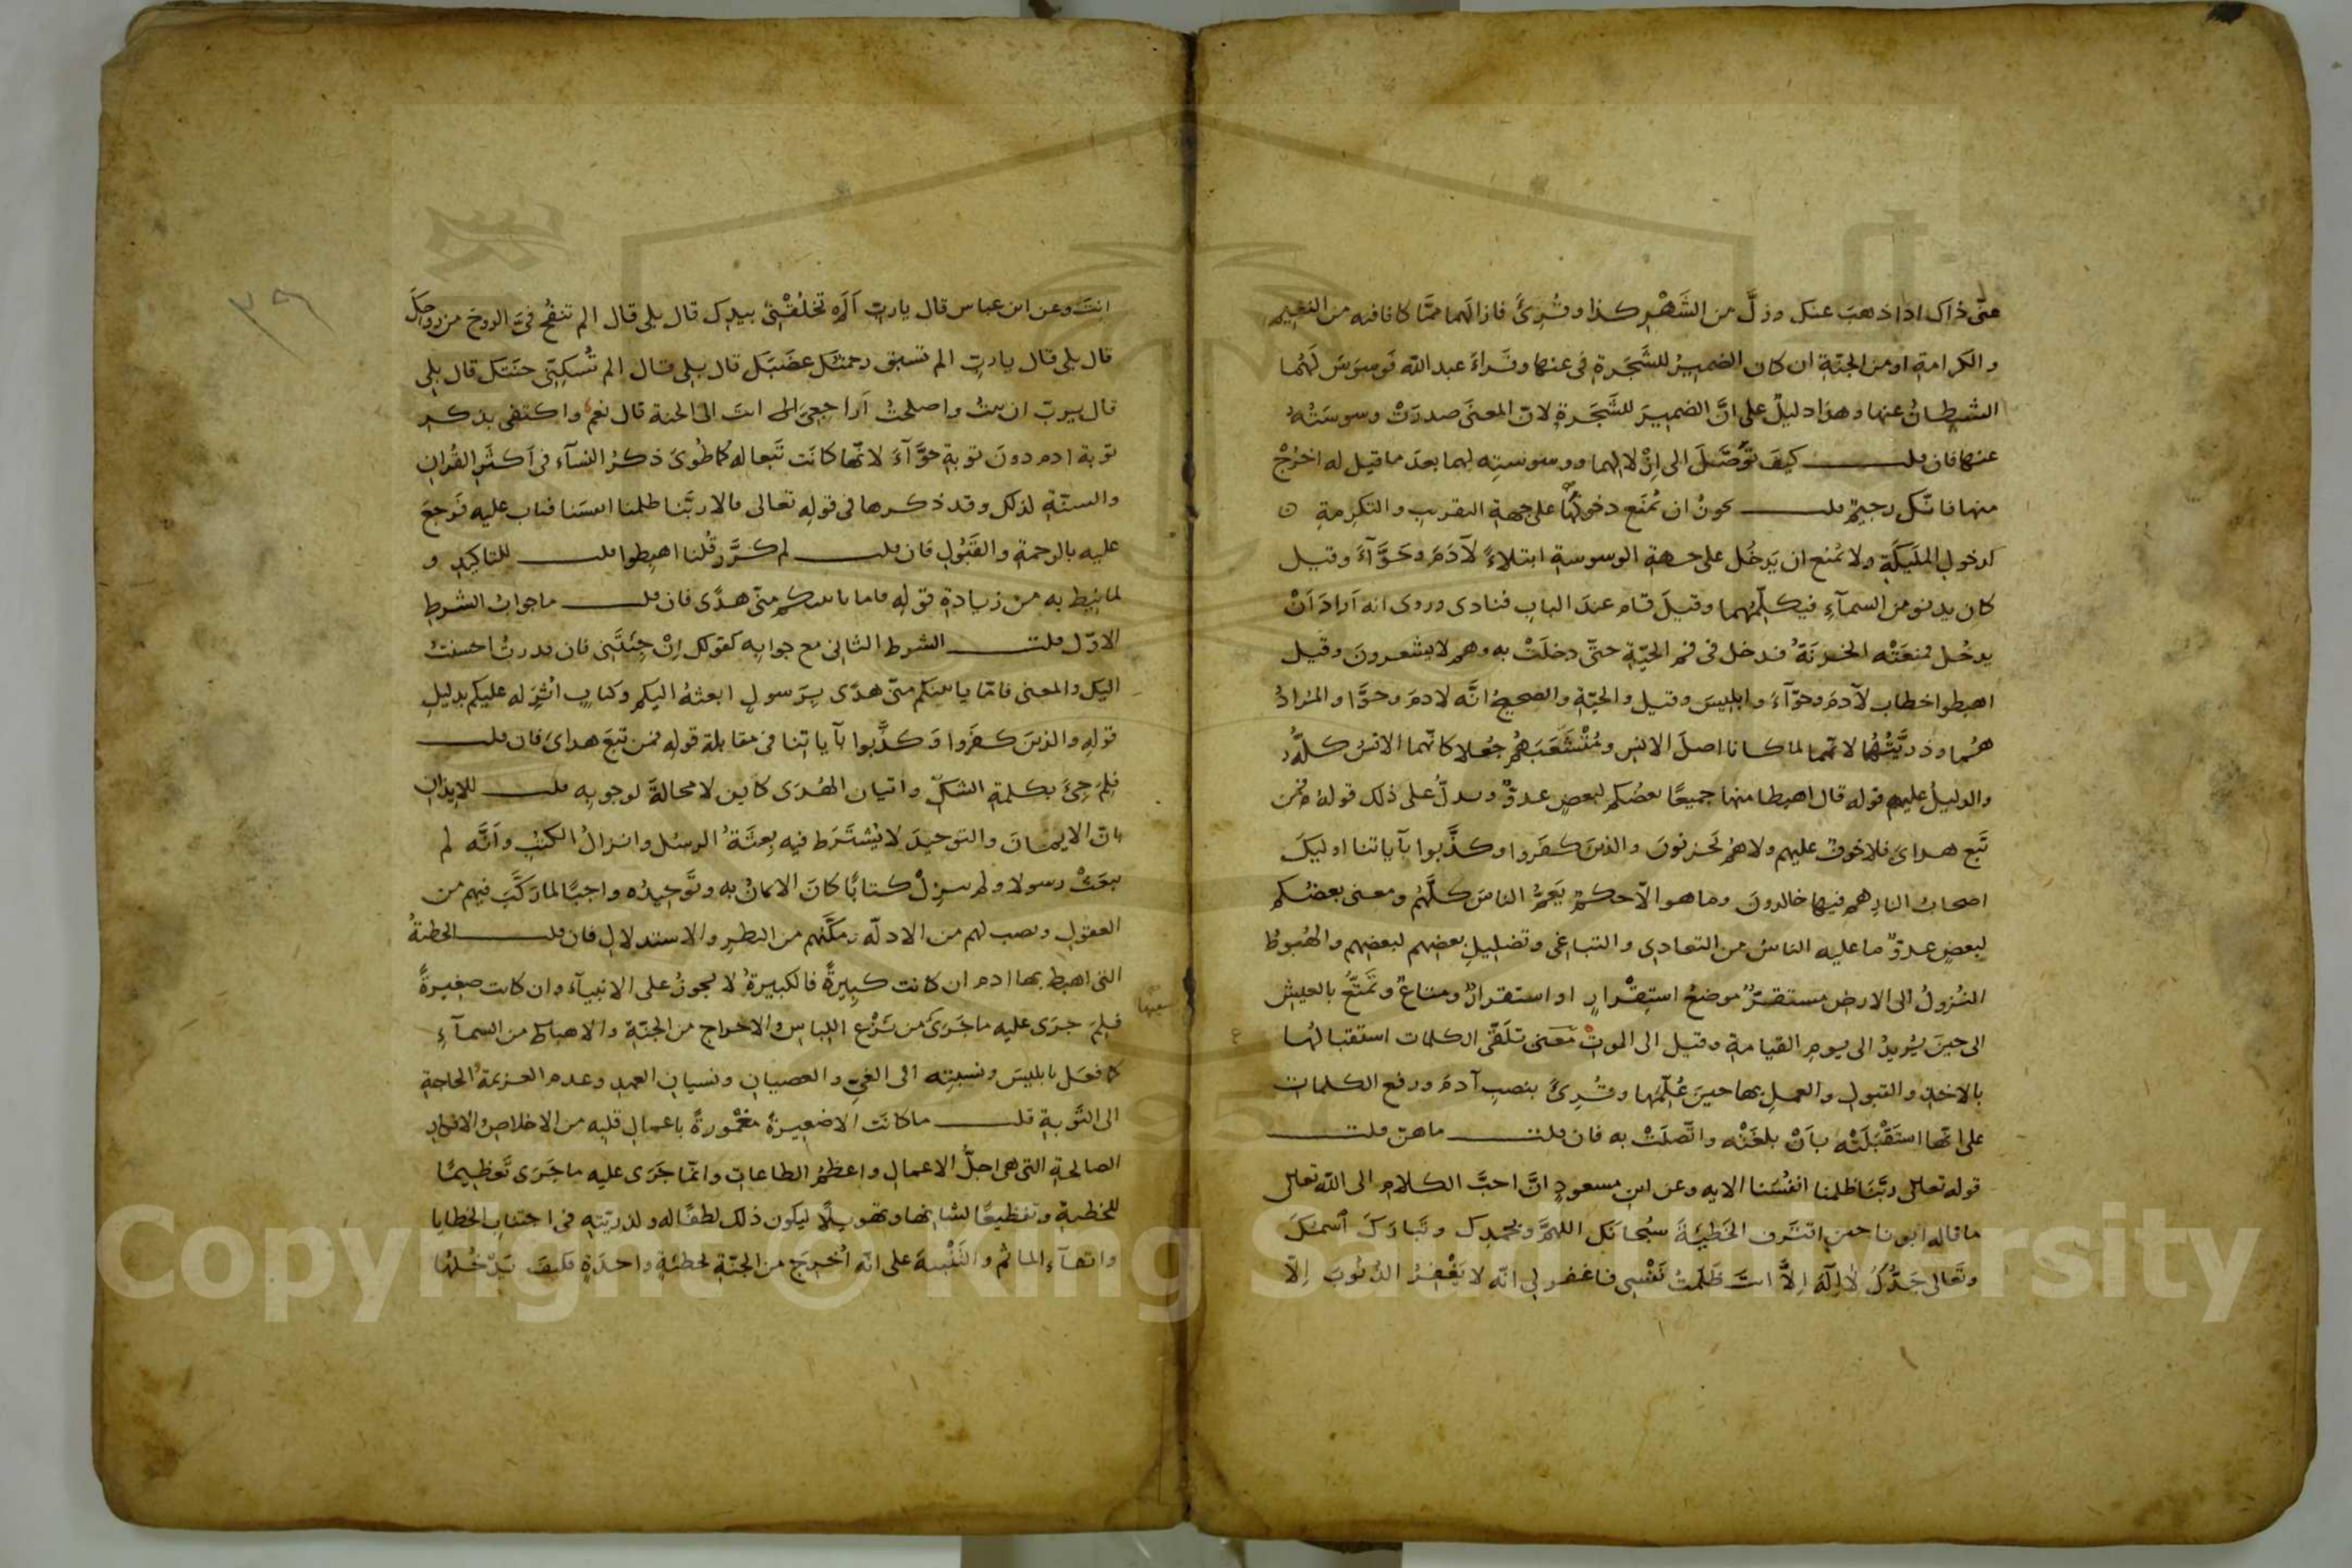 عنّى ذاك اذا ذهبَ عنك وزلَّ من الشَهْرِ كذا وقُرِئَ فازالَهما ممّا كانا فيه من النعيم
والكرامةِ او من الجنّةِ ان كان الضميرُ للشَجَرةِ فى عنها وقَراءَ عبد الله فَوسْوَسَ لَهُما
الشيطانُ عنها وهذا دليلٌ على انَّ الضميرَ للشَجَرةِ لانّ المعنَى صدرَتْ وسوسَتُهُ
عنها فان قلت كيفَ تَوَصَّلَ الى اِزْلالِهما ووسوستِه لهما بعدَ ما قيل له اخرُجْ
منها فانّك رجيمٌ قلت يجوزُ ان يُمنَع دخولَها على جهةِ التقريبِ والتكرِمةِ
كدخولِ الملَيِكَةِ ولا يُمنع ان يَدخُل على جهةِ الوسوسةِ ابتلاءً لآدَمَ وحَوَّآءَ وقيل
كان يدنو من السمآءِ فيكلّمهما وقيلَ قام عندَ البابِ فنادى وروى انه اَرادَ اَنْ
يدخُل فمنعَتْه الخزنَةُ فدخل فى فمِ الحيّةِ حتّى دخلَتْ به وهم لا يشعرونَ وقيل
اهبطوا خطاب لآدمَ وحوّآءَ وابليسَ وقيل والحيّةِ والصحيحُ انَّه لادمَ وحوّا والمُرادُ
هُما وذريَّتُهُما لانّهما لما كانا اصلَ الانسِ ومُتَشَعَّبَهُم جُعلا كانّهما الانسُ كلُّهُ
والدليلُ عليه قوله قال اهبطا منها جميعًا بعضُكم لبعضٍ عدوٌّ ويدلُّ على ذلك قولهُ فمن
تَبِعَ هداىَ فلا خوفٌ عليهم ولا هم يَحزنونَ والذينَ كفَروا وكذَّبوا بآياتنا اوليكَ
اصحابُ النارِ هم فيها خالدونَ وما هو الّا حكمٌ يَعمُّ الناسَ كلَّهُم ومعنى بعضُكم
لبعضٍ عدوٌّ ما عليه الناسُ من التعادى والتباغى وتضليلِ بعضِهم لبعضِهم والهُبوطُ
النُزولُ الى الارضِ مستقرٌّ موضعُ استِقْرارٍ او استقرارٌ ومتاعٌ وتَمَتُّعٌ بالعيشِ
الى حينَ يُريدُ الى يومِ القيامةِ وقيل الى الموتِ مَعنى تلَقّى الكلمات استقبالُها
بالاخذِ والقبولِ والعملِ بها حينَ عُلّمَها وقُرِئَ بنصبِ آدمَ ورفع الكلمات
على انّها استَقْبَلَتْه بِاَنْ بلغَتْه واتّصلَتْ به فان قلت ما هن قلت
قوله تعالى ربَّنا ظلمنا انفُسَنا الايه وعن ابنِ مسعودٍ انَّ احبَّ الكلامِ الى الله تعالى
ما قاله ابونا حينَ اقتَرف الخَطيئةَ سبُحانَك اللهمَّ وبحمدِك وتَبارَكَ اسمُكَ
وتَعالى جَدُّكَ لا اِلَهَ اِلَّا انتَ ظَلَمتُ نَفْسى فاغفر لى انّه لا يَغْفِرُ الذُنوبَ اِلّا
انتَ وعن ابن عباس قال يا ربِّ اَلَم تخلُقْنى بيدِك قال بلى قال الم تنفُخ فىَّ الروحَ من روحِكَ
قال بلى قال يا ربِّ الم تسبق رحمتُكَ غضَبَكَ قال بلى قال الم تُسكِنّى جنَتَك قال بلى
قال يرب ان تبتُ واصلحتُ اَراجعىَ انتَ الى الجنة قال نعم واكتفى بذكر
توبة ادم دونَ توبةِ حَوَّآءَ لانّها كانَت تَبعا له كما طُوِىَ ذكرُ النسآءِ فى اَكثَرِ القُرانِ
والسنّةِ لذلك وقد ذكرها فى قولِه تعالى قالا ربَّنا ظلمنا انفسَنا فتاب عليه فَرجعَ
عليه بالرحمةِ والقَبُولِ فان قلت لم كرَّرَ قُلنا اهبطوا قلت للتاكيدِ و
لما نِيطَ به من زيادةِ قولِه فاما ياتينكم منّى هدًى فان قلت ما جوابُ الشرطِ
الاوّل قلت الشرط الثانى مع جوابِه كقولك اِنْ جِئتَنِى فان قدرتُ احسنتُ
اليك والمعنى فامّا ياتينكم منّى هدًى بِرَسولٍ ابعثهُ اليكم وكتابٍ اُنزِله عليكم بدليلِ
قولِه والذينَ كفَروا وَكذَّبوا بآياتنا فى مقابلة قولِه فمن تبعَ هداىَ فان قلت
فلِمَ جِئَ بكلمةِ الشكّ واتيان الهُدَى كاين لا محالةَ لوجوبِه قلت للايذانِ
بانّ الايمانَ والتوحيدَ لا يُشتَرَط فيه بِعثَةُ الرسُل وانزالُ الكتبِ وانَّه لم
يبعَثْ رسولا ولم ينزِلْ كتابًا كانَ الايمانُ به وتَوحيدُه واجبًا لما ركَّبَ فيهم من
العقولِ ونصب لهم من الادلّه ومكَّنهم من النظرِ والاستدلالِ فان قلت الخطيئةُ
التى اهبِط بها ادم ان كانت كبيرةً فالكبيرةُ لا تجوزُ على الانبيآءِ وان كانت صغيرةً
فلِمَ جرَى عليه ما جَرَى من نَزْعِ اللباسِ والاخراج من الجنّةِ والاهباط من السمآءِ
كما فعَل بابليسَ ونسبتِه الى الغىّ والعصيانِ ونسيانِ العهدِ وعدمِ العزيمةِ الحاجةِ
الى التَوبةِ قلت ما كانَت الا صَغيرةً مغمُورةً باعمالِ قلبِه من الاخلاصِ والافكارِ
الصالحةِ التى هى اجلُّ الاعمالِ واعظمُ الطاعاتِ وانّما جَرَى عليه ما جَرَى تَعظيمًا
للخطيةِ وتفظيعًا لشانِها وتهويلًا ليكون ذلك لطفًا له ولذريّتِهِ فى اجتنابِ الخطايا
واتقآءِ الماثم والتَنْبيهَ على انّه اُخرِجَ من الجنّةِ بخطيئةٍ واحدةٍ فكيفَ يَدْخُلُها